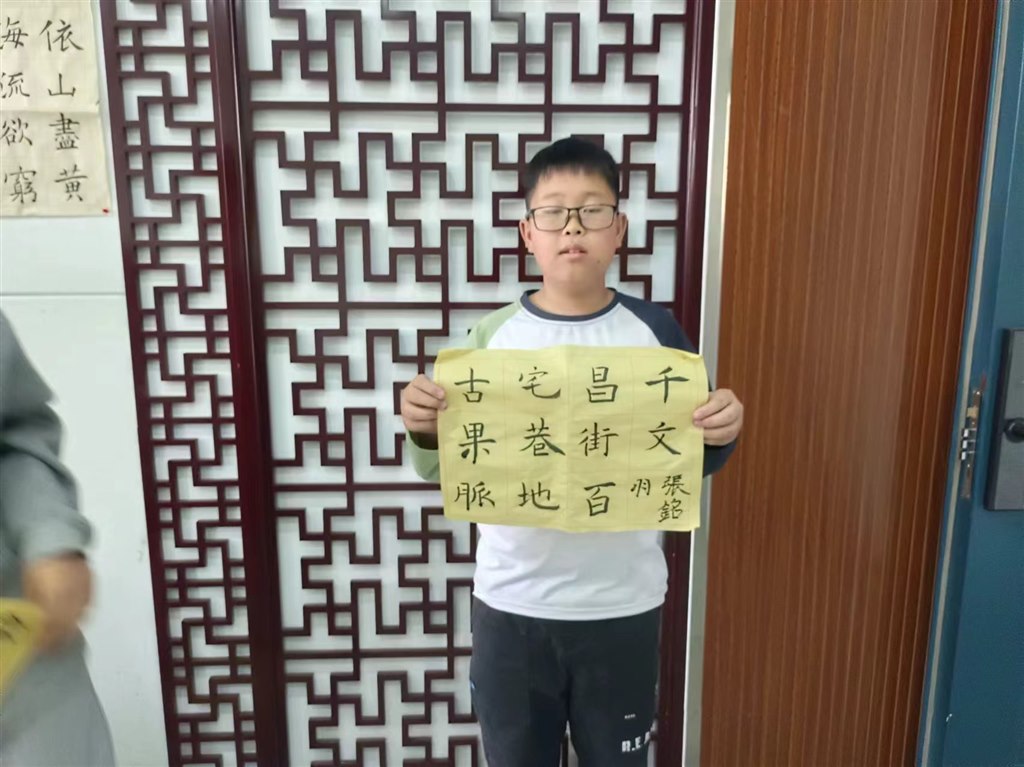 依山盡黄
海流欲窮
古宅昌千
果巷街文
脈地百
張銘
羽